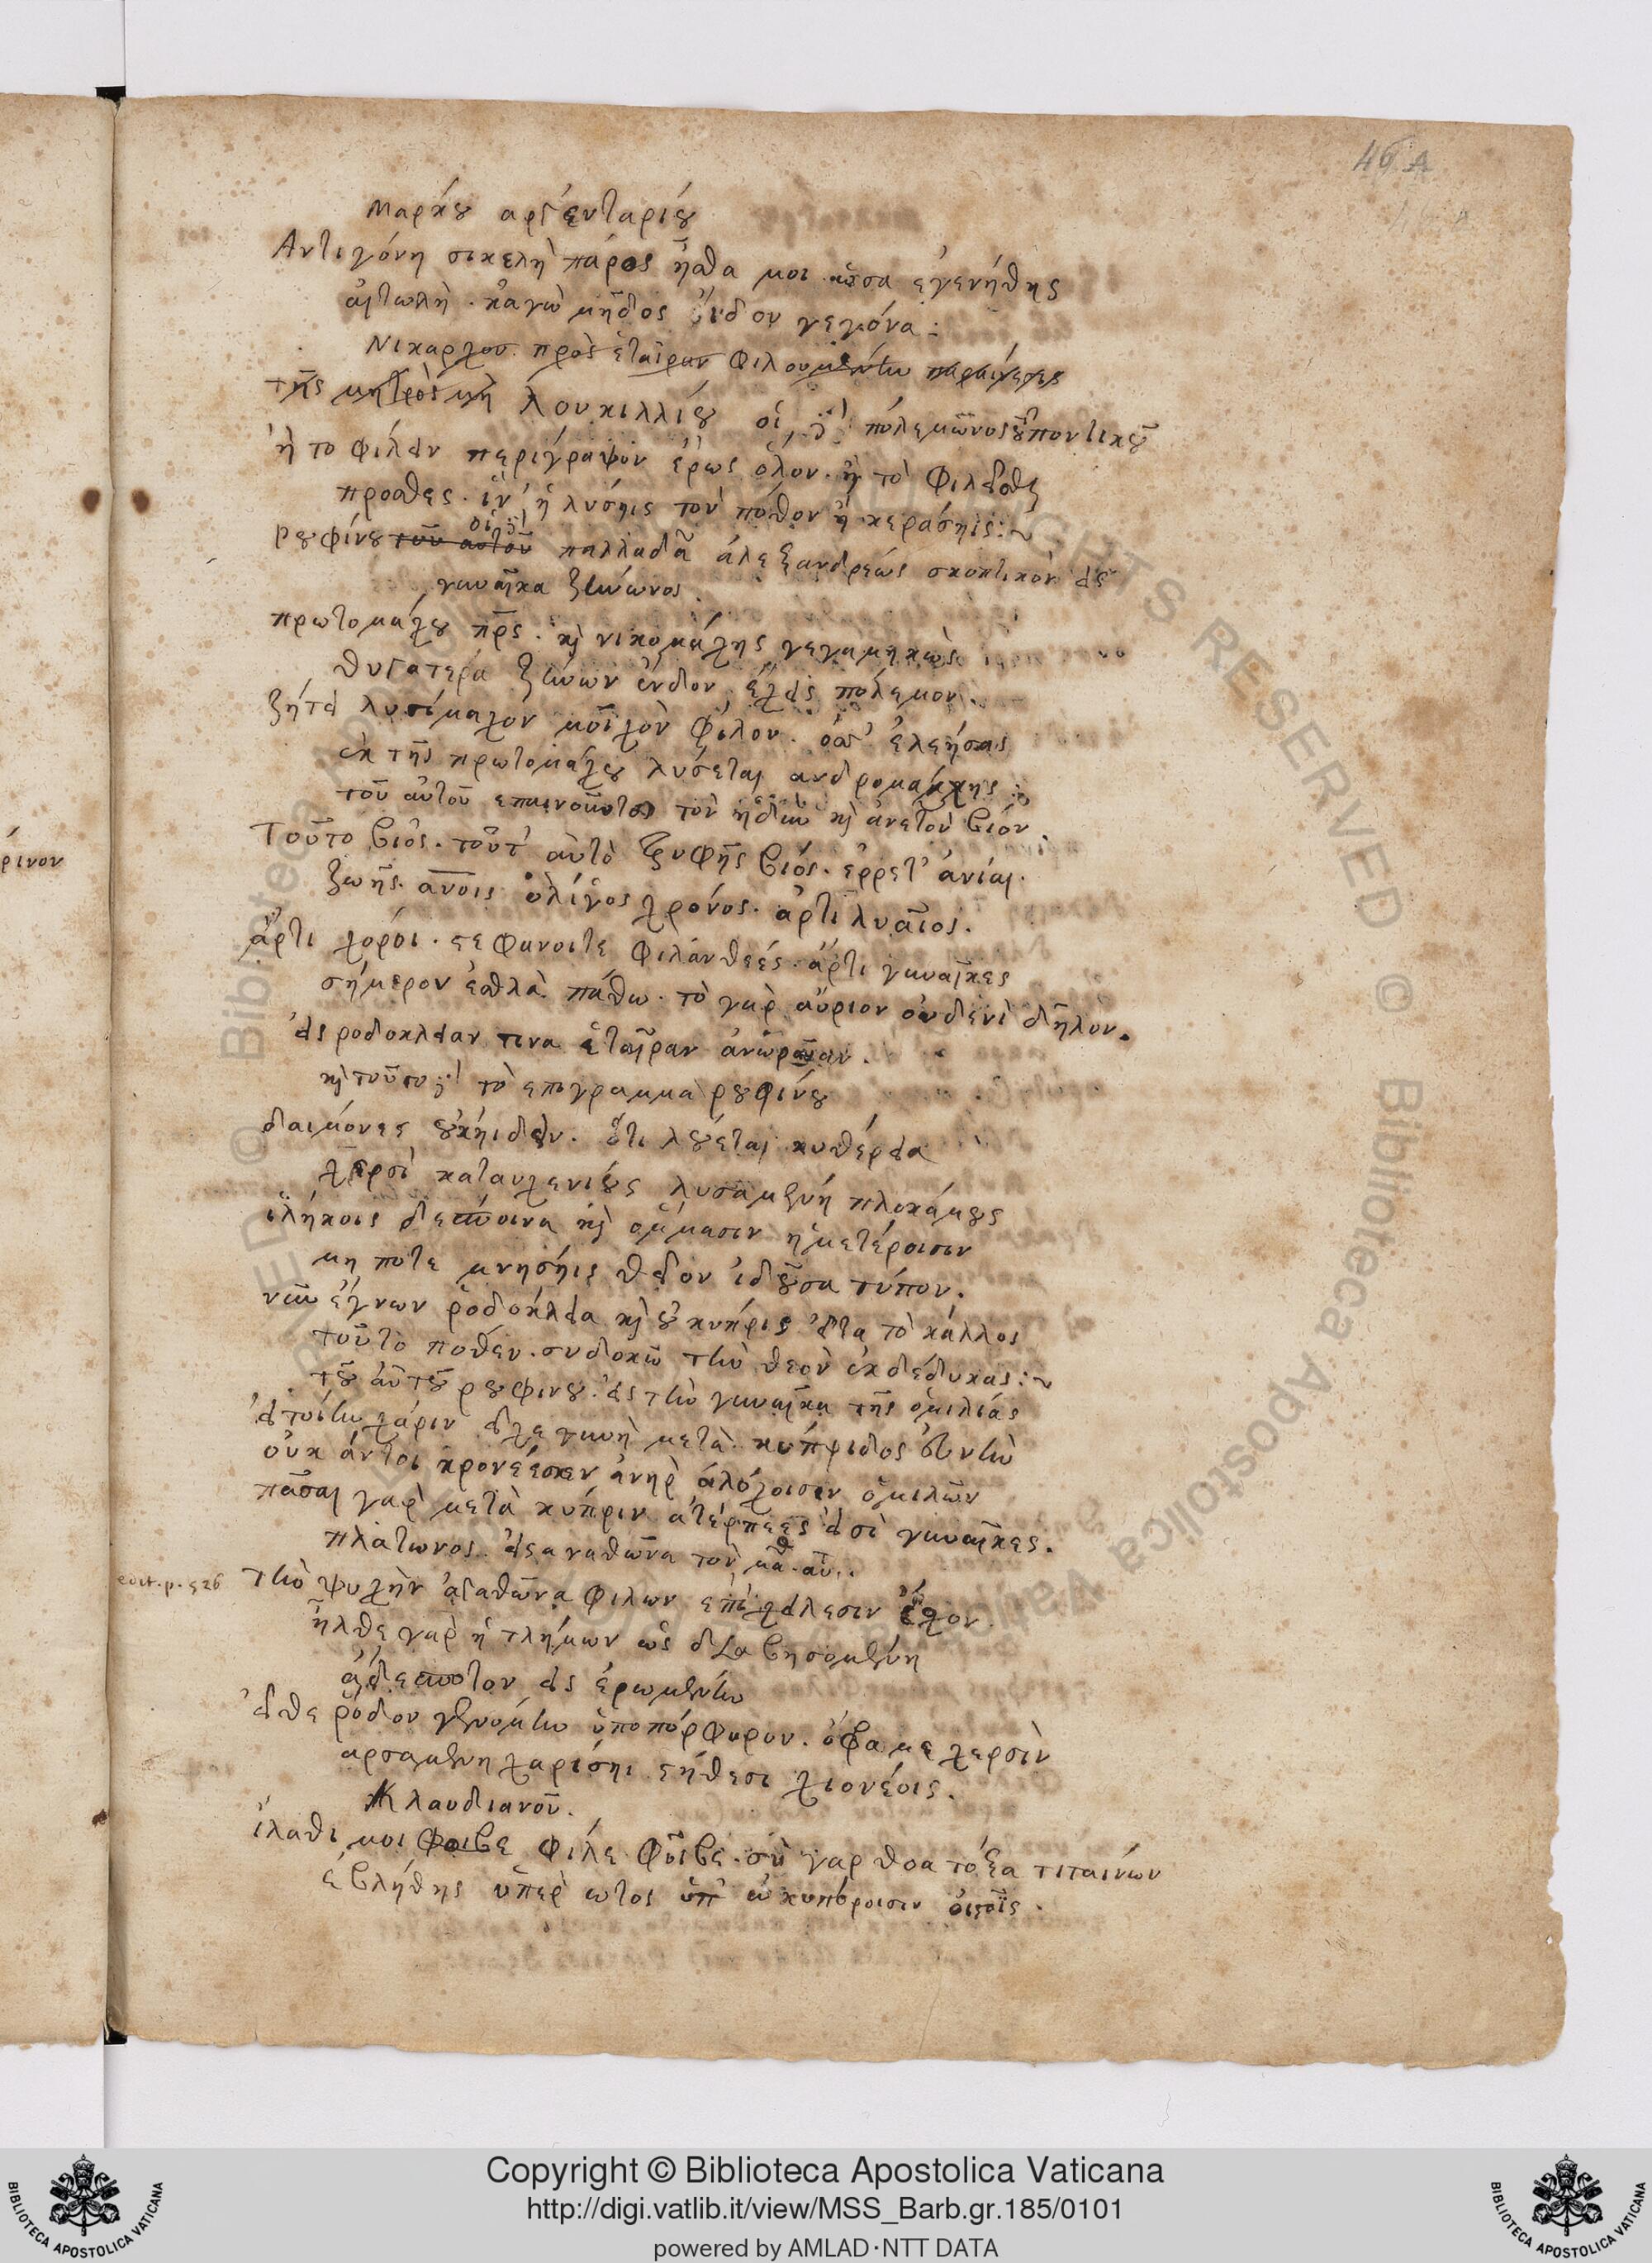 46 A
Μαρκου αργενταρίου
Αντιγόνη σικελὴ πάρος ἦσθα μοι ὡσα ἐγενήθης
αἰτωλὴ· κἀγὼ μῆδος ἰδου γεγόνα:
Νικαρχου πρὸς ἑταῖραν Φιλουμένην παραίνεσις
τῆς μητρὸς μὴ Λουκιλλίου οἱ δὲ πολεμῶνος τοῦ ποντικοῦ
ἢ το φιλεῖν περίγραψον ἔρως ὅλον· ἢ τὸ φιλεῖσθαι
προσθες· ἵν' ἢ λυσῃις τον πόθον ἢ κεράσῃις:~
ρουφίνου τοῦ αυτοῦ οἱ δὲ παλλαδᾶ ἀλεξανδρεώς σκοπτικὸν εἰς
γυναῖκα ζήνωνος.
πρωτομάχου πρς· καὶ νικομάχης γεγαμηκὼς
θυγατερα ζήνων ἔνδον ἔχεις πόλεμον.
ζήτει λυσίμαχον μοῖχὸν φίλον· ὅς σ' ἐλεήσας
ἐκ τῆς πρωτομάχου λύσεται ανδρομαχης:
τοῦ αὐτοῦ επαινοῦντος τὸν ἡδὺν καὶ ἀνετὸν βιόν.
Τοῦτο βίος· τοῦτ' αὐτὸ τρυφῆς βιός· ἐρρετ' ἀνίαι·
ζωῆς ανοις ὀλίγος χρόνος· ἄρτι λυαῖος.
ἄρτι χόροι· στεφανοιτε φιλανθεές· ἄρτι γυναῖκες
σήμερον ἐσθλὰ πάθω· τὸ γαρ αὔριον οὐδενὶ δῆλον.
εἰς ροδοκλειαν τινα ἑταῖραν ἀνωραίαν.
καὶ τοῦτο τὸ επιγραμμα ρουφίνου
δαιμόνες οὐκ ᾔιδειν· ὅτι λούεται κυθέρεια
χερσὶ καταυχενίους λυσαμένη πλοκάμους
ἱλήκοις δεσποινα καὶ ὄμμασιν ἡμετέροισιν
μη ποτε μνησῃις θεῖον ἰδοῦσα τύπον.
νῦν ἔγνων ῥοδόκλεια καὶ οὐ κυπρις εἶτα τὸ κάλλος
τοῦτο ποθεν· συ δοκῶ τὴν θεον ἐκδέδυκας:~
τοῦ αὐτοῦ ρουφινου· εἰς τὴν γυναῖκα τῆς ὁμιλίας
εἰ τοίην χάριν εἶχε γυνὴ μετὰ κύπριδος εὐνὴν
οὐκ ἄν τοι χρονέεσκεν ἀνηρ ἀλόχοισιν ὁμιλῶν
πᾶσαι γαρ μετὰ κυπριν ἀτερπέες εἰσὶ γυναῖκες.
πλάτωνος· εἰς αγαθῶνα τον μαθ. αὐ..
edit. p. 526 τὴν ψυχὴν ἀγαθῶνα φιλων επι χείλεσιν ἔσχον.
ἦλθε γαρ ἡ τλήμων ὡς διαβησομένη
ἀδεσποτον εἰς ἐρωμένην
εἴθε ῥόδον γενοίμην ὑποπόρφυρον· ὄφρα με χερσὶν
αρσαμένη χαρίσῃι στήθεσι χιονέοις.
Κλαυδιανοῦ.
ἵλαθι μοι Φοιβε φίλε Φοῖβε· σὺ γαρ θοα τόξα τιταίνων
ἐβλήθης ὑπερ ωτος ὑπ' ὠκυπόροισιν ὀιστοῖς.
ρινον
Copyright © Biblioteca Apostolica Vaticana
http://digi.vatlib.it/view/MSS_Barb.gr.185/0101
powered by AMLAD·NTT DATA
BIBLIOTECA APOSTOLICA VATICANA
BIBLIOTECA APOSTOLICA VATICANA